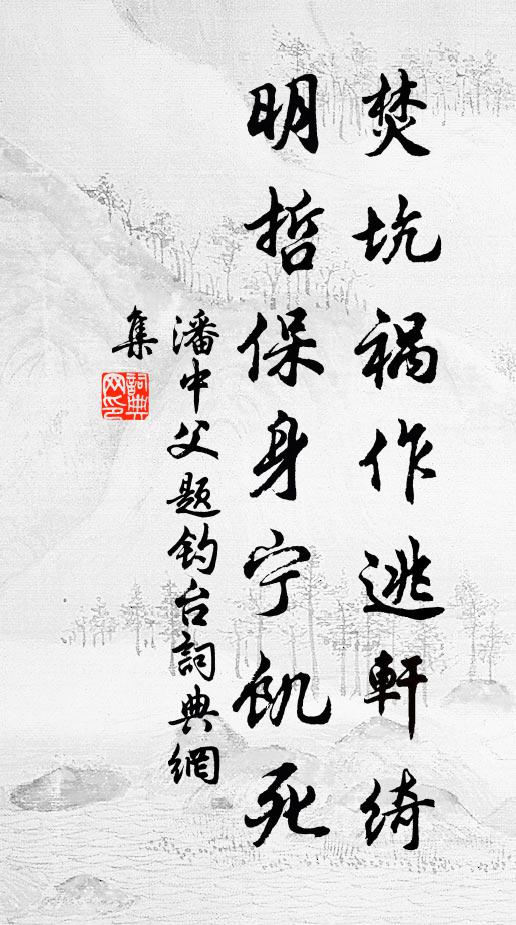 焚坑祸作逃軒绮
明哲保身宁飢死
潘中父题钓台詞典網
集
詞典网印